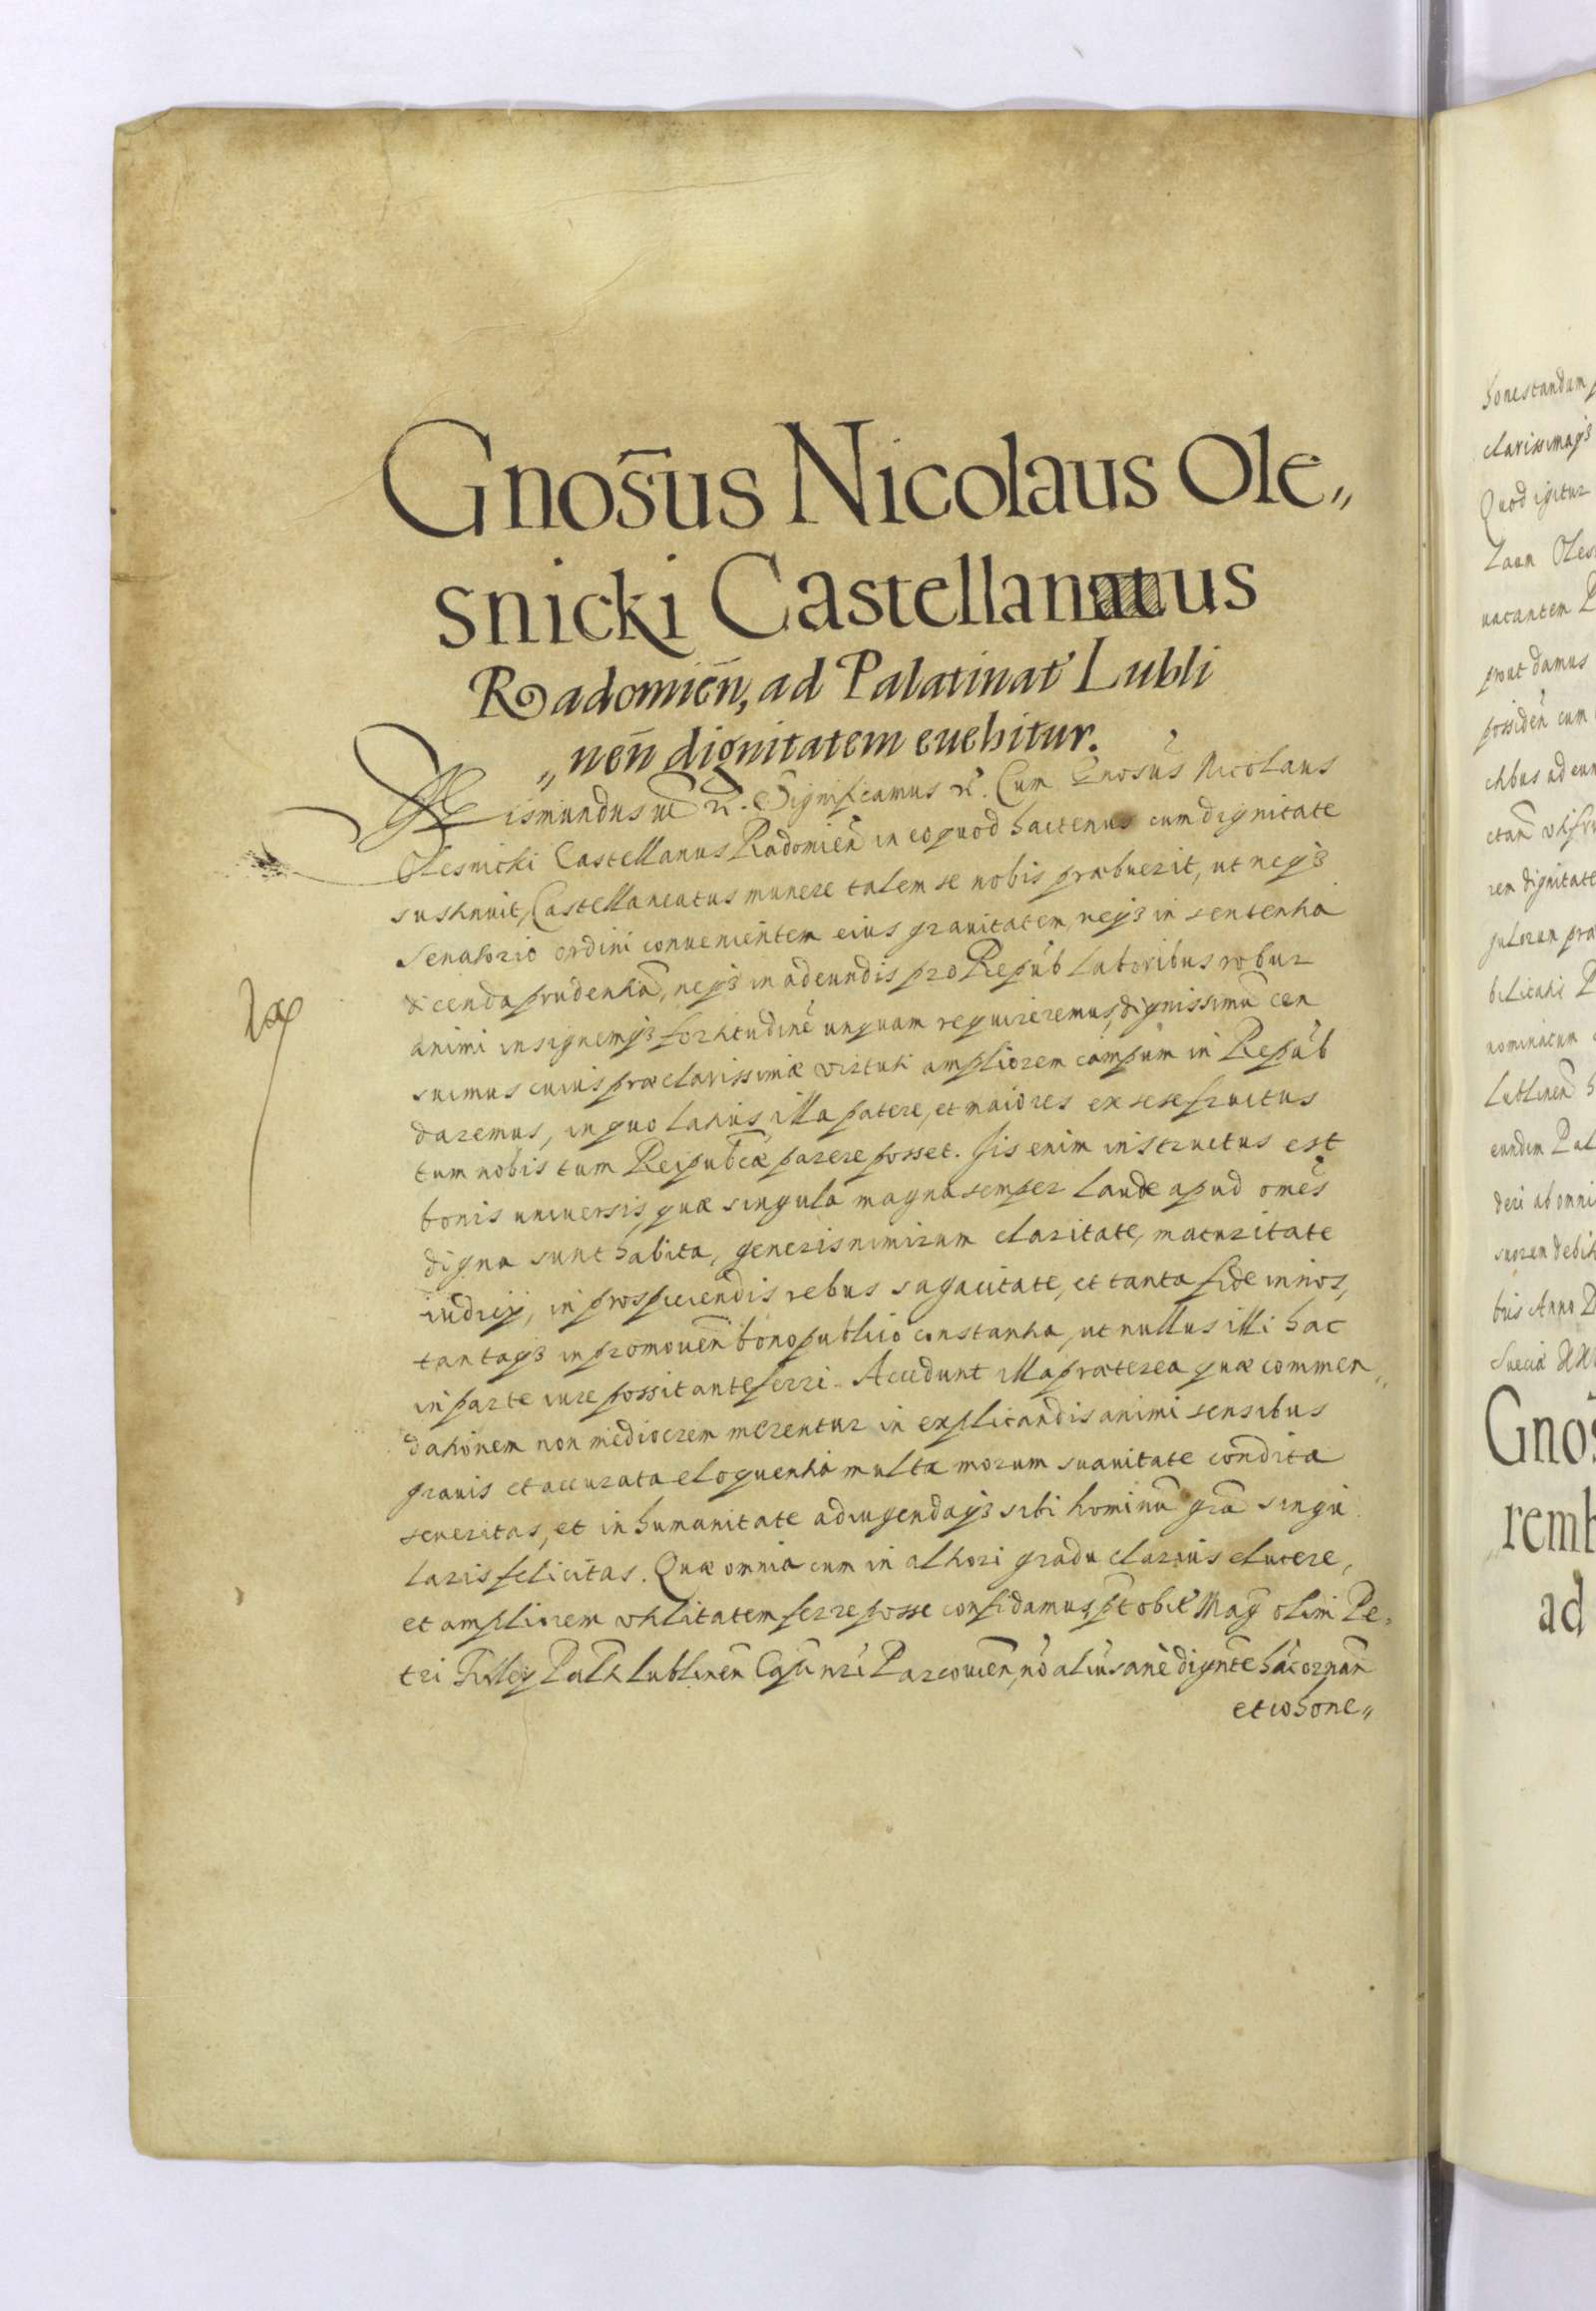 Gnos̃us Nicolaus Ole„
snicki Castellanus
Radomieñ, ad Palatinat Lubli
„neñ dignitatem euehitur.
Sigismundus &c. Significamus &c. Cum Gnosus Nicolaus
Olesnicki Castellanus Radomien̄ in eo quod hactenus cum dignitate
sustinuit, Castellaneatus munere talem se nobis præbuerit, ut neqз
senatorio ordini conuenientem eius grauitatem, neqз in sententia
dicenda prudentiā, neqз in adeundis pro Repub laboribus robur
animi insignemqз fortitudinē unquam requireremus, dignissimū cen
suimus cuius præclarissimæ virtuti ampliorem campum in Repub
daremus, in quo latius illa patere, et maiores ex sese fructus
tum nobis tum Reipubcæ parere posset. Iis enim instructus est
bonis uniuersis, quæ singula magna semper laude apud omēs
digna sunt habita, generis nimirum claritate, maturitate
iudicij, in prospiciendis rebus sagacitate, et tanta fide in nos,
tantaqз in promouen̄ bono publico constantia, ut nullus illi hac
in parte iure possit anteferri. Accedunt illa præterea quæ commen„
dationem non mediocrem merentur in explicandis animi sensibus
grauis et accurata eloquentia multa morum suauitate condita
seueritas, et in humanitate adiugendaqз sibi hominū grā singu
laris felicitas. Quæ omnia cum in altiori gradu clarius elucere,
et ampliorem vtilitatem ferre posse confidamus, pt obit Mag olim Pe„
tri Firlley Paltī Lublinen̄ Capn̄ nri Parcouien̄, nō alius anè dignē hāc ornan̄
et cohone„
honestandam
clarissimaqз
Quod igitur
laum Oles
vacantem P
prout damus
possiden̄ cum
rem dignitate
nominatum
Lublinen̄
eundem Pal
deri ab omni
suorum debit
bris Anno D
Sueciæ
Gnos̃
remb
ad